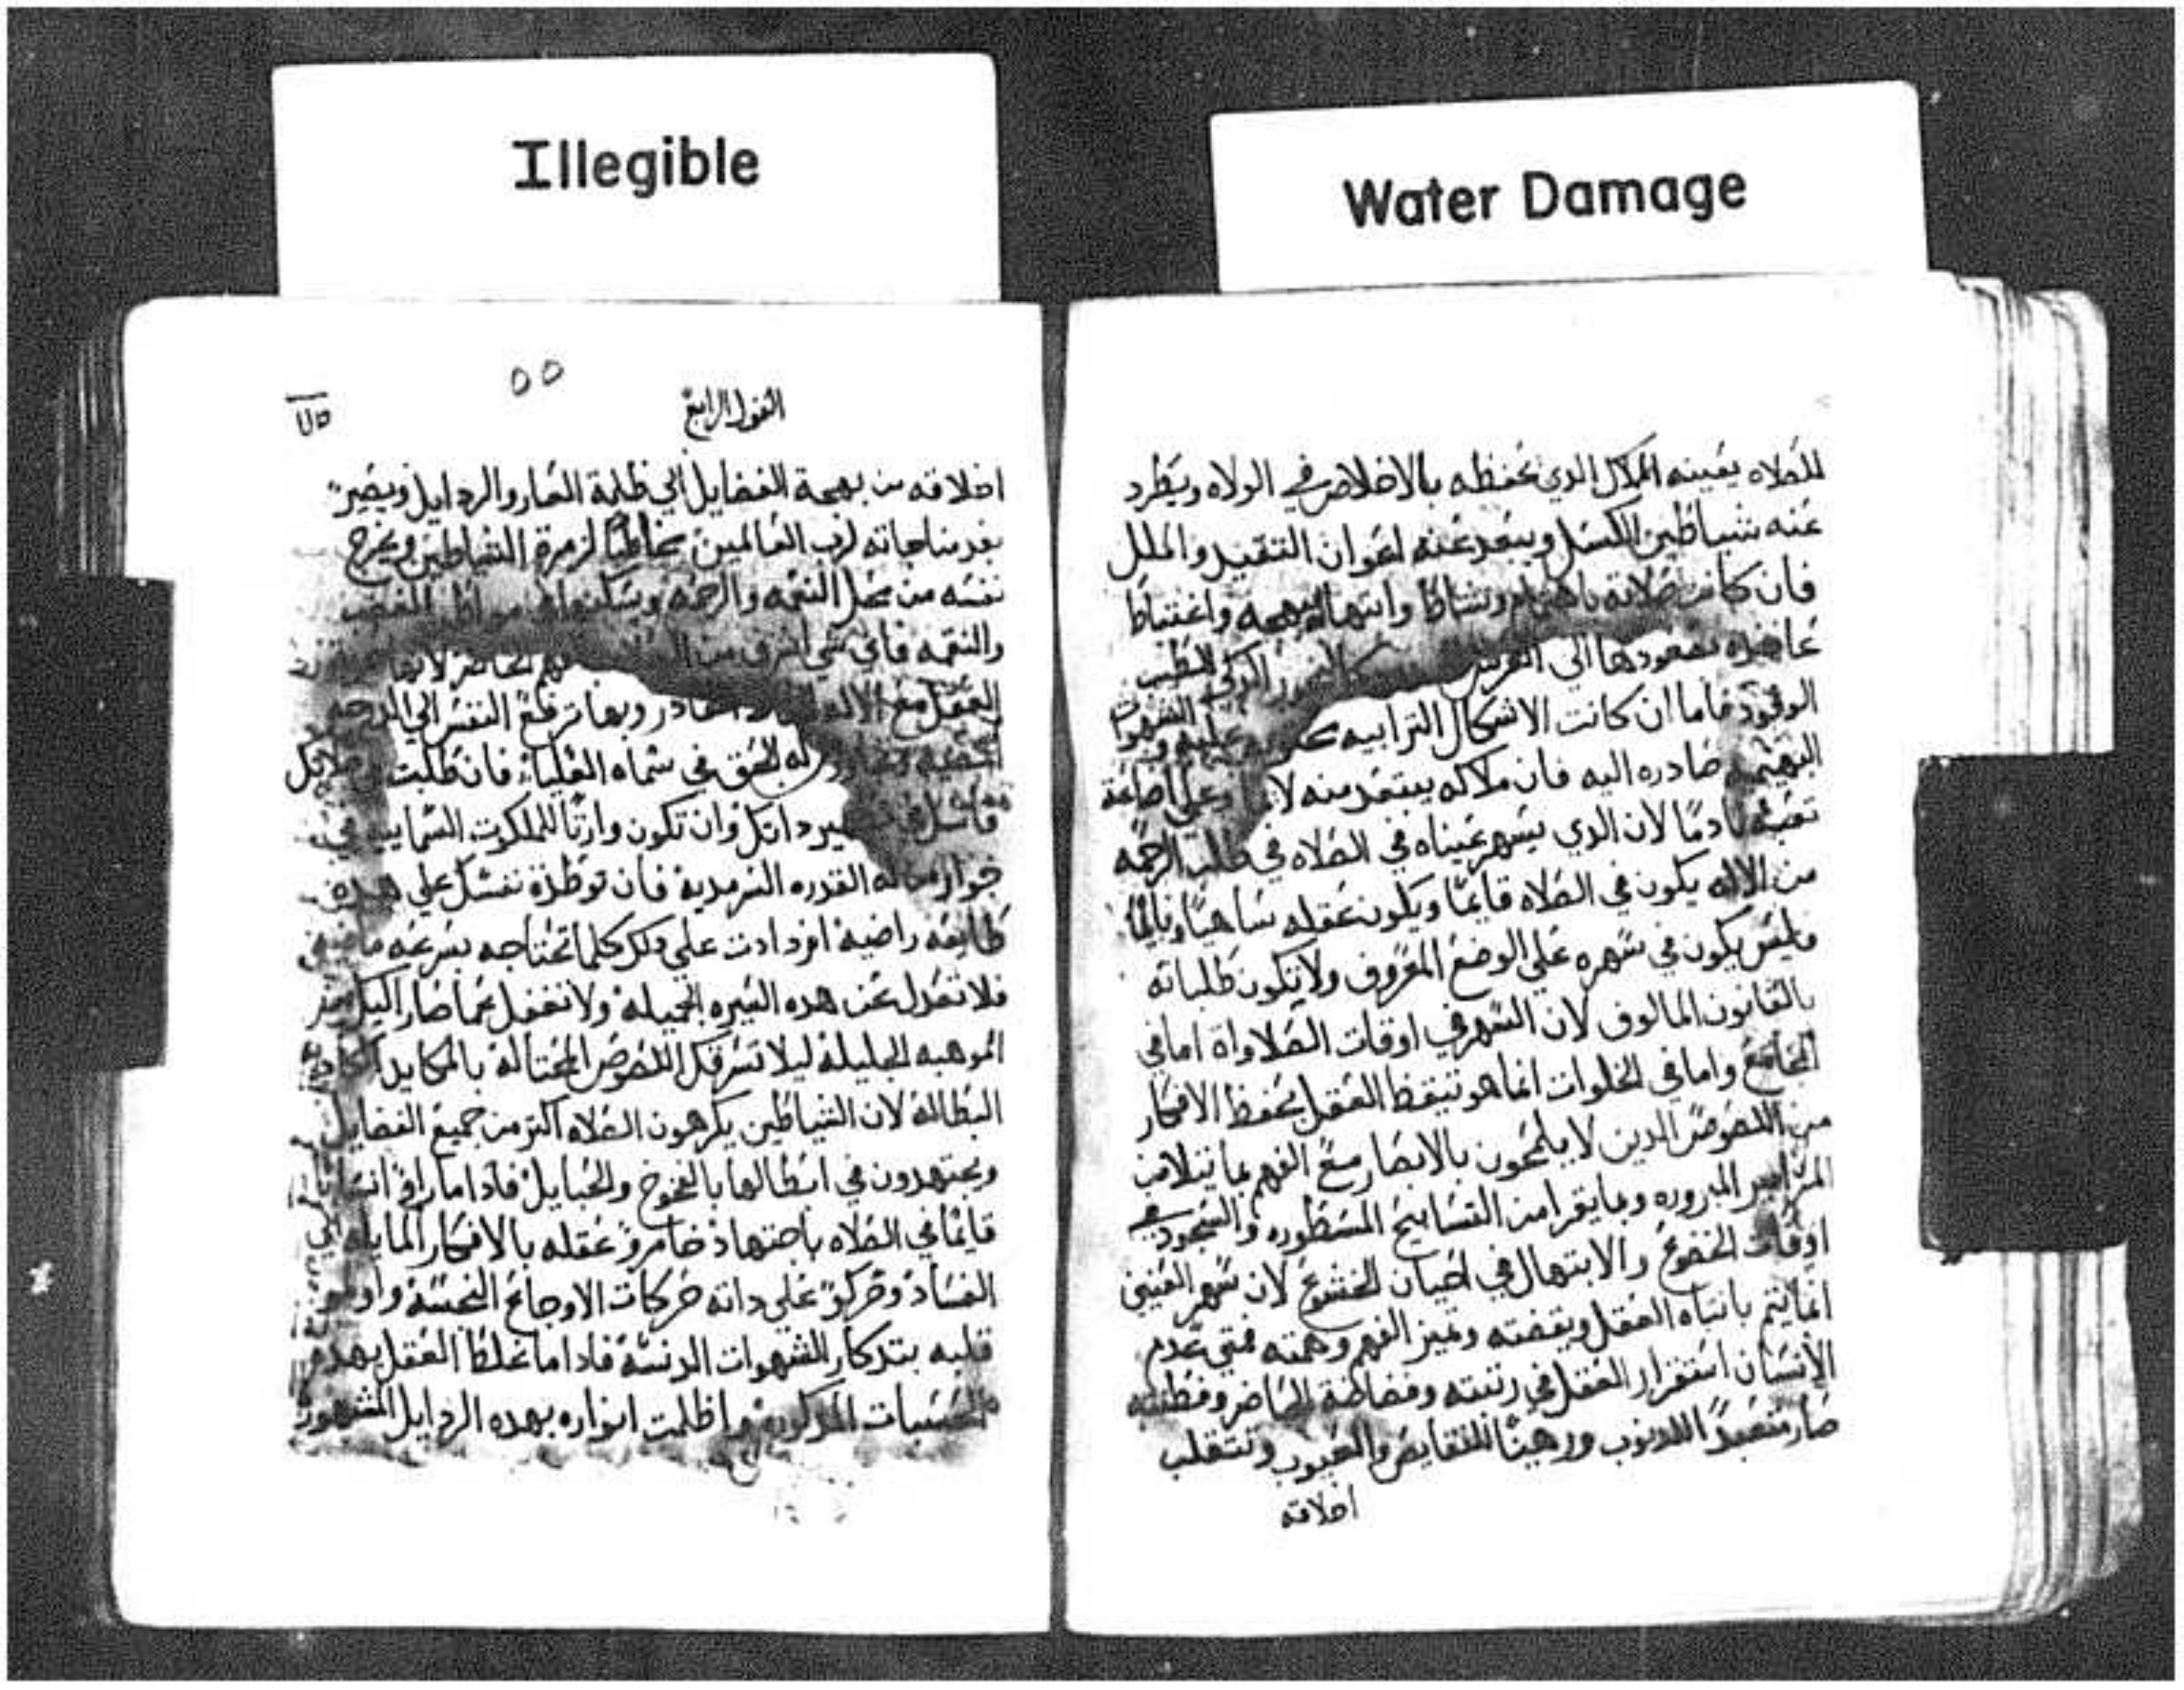 Illegible
Water Damage
للصلاه يعينه الملاك الدي يحفظه بالاخلاص في الولاه ويطرد
عنه شياطين الكسل ويبعد عنه اعوان التقيد والملل
فان كانت صلاته ونشاط وابتهال واغتباط
بصعودها الي الدكي الطيب
الوقود فاما ان كانت الاشكال الترابيه
البهيميه صادره اليه فان ملاكه يبتعد منه وعلي اضاعة
تعبه نادمًا لان الدي يسهر عيناه في الصلاه في طلب الرحمه
من الاله يكون في الصلاه قايمًا ويكون عقله ساهيًا ونايمًا
وليس يكون في سهره علي الوضع المعروف ولا تكون طلباته
بالقانون المالوف لان السهر في اوقات الصلاواة اما في
المجامع واما في الخلوات انما هو تيقظ العقل بحفظ الافكار
من اللصوص الدين لا يلمحون بالابصار مع الفهم بما يتلا من
المزامير المبروره وما يقرا من التسابيح المسطوره والسجود في
اوقات الخضوع والابتهال في احيان الخشوع لان سهر العينين
انما يتم بانتباه العقل ويقضته وتميز الفهم وهمته فمتي عدم
الانسان استقرار العقل في رتبته وفضاضة الحاضر وفطنته
صار متعبدًا للدنوب ورهينًا للنقايص والعيوب وتنتقلب
اخلاقه
٥٥
القول الرابع
اخلاقه من بهجة الفضايل الي ظلمة العار والردايل ويصير
بعد مناجاته لرب العالمين مخاطبًا لزمرة الشياطين ويخرج
نفسه من محل النعمه والرحمه الغضب
والنقمه فاي شي اشرف من
العقل مع الاله القادر وبها ترتفع النفس الي
الحق في سماه العليا فان طلبت
داتك وان تكون وارتًا للملكوت السماييه
جوار من له القدره السرمدية فان توطدة نفسك علي هده
طايعه راضية ازدادت علي دلك كلما تحتاجه بسرعه
فلا تعدل عن هده السيره الجميلة ولا تغفل عما صار اليك من
الموهبه الجليلة ليلا تسرقك اللصوص المحتالة بالمكايد
البطالة لان الشياطين يكرهون الصلاه اكتر من جميع الفضايل
ويجتهدون في ابطالها بالفخوخ والحبايل فادا ما راو
قايمًا في الصلاه باجتهاد خامرو عقله بالافكار المايله الي
الفساد وحركو علي داته حركات الاوجاع النجسة
قلبه بتدكار الشهوات الدنسة فادا ما غلط العقل بهده
المدكوره واظلمت انواره بهده الردايل المشهوره